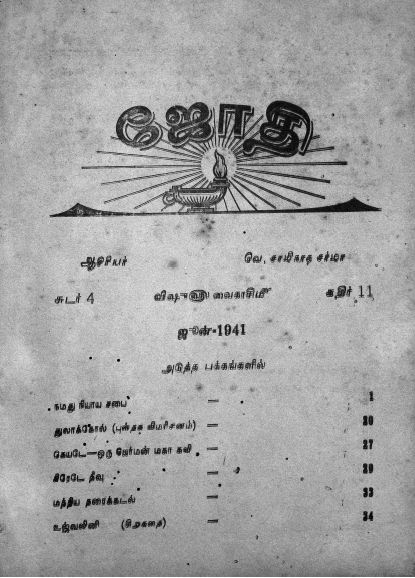 ஜோதி
ஆசிரியர் வெ. சாமிநாத சர்மா
சுடர் 4 விஷு௵ வைகாசி௴ கதிர் 11
ஜூன்-1941
அடுத்த பக்கங்களில்
நமது நியாய சபை — 1
துலாக்கோல் (புஸ்தக விமரிசனம்) — 20
கேயடே—ஒரு ஜேர்மன் மகா கவி — 27
கிரேடே தீவு — 29
மத்திய தரைக்கடல் — 33
உஜ்வலினி (சிறுகதை) — 34